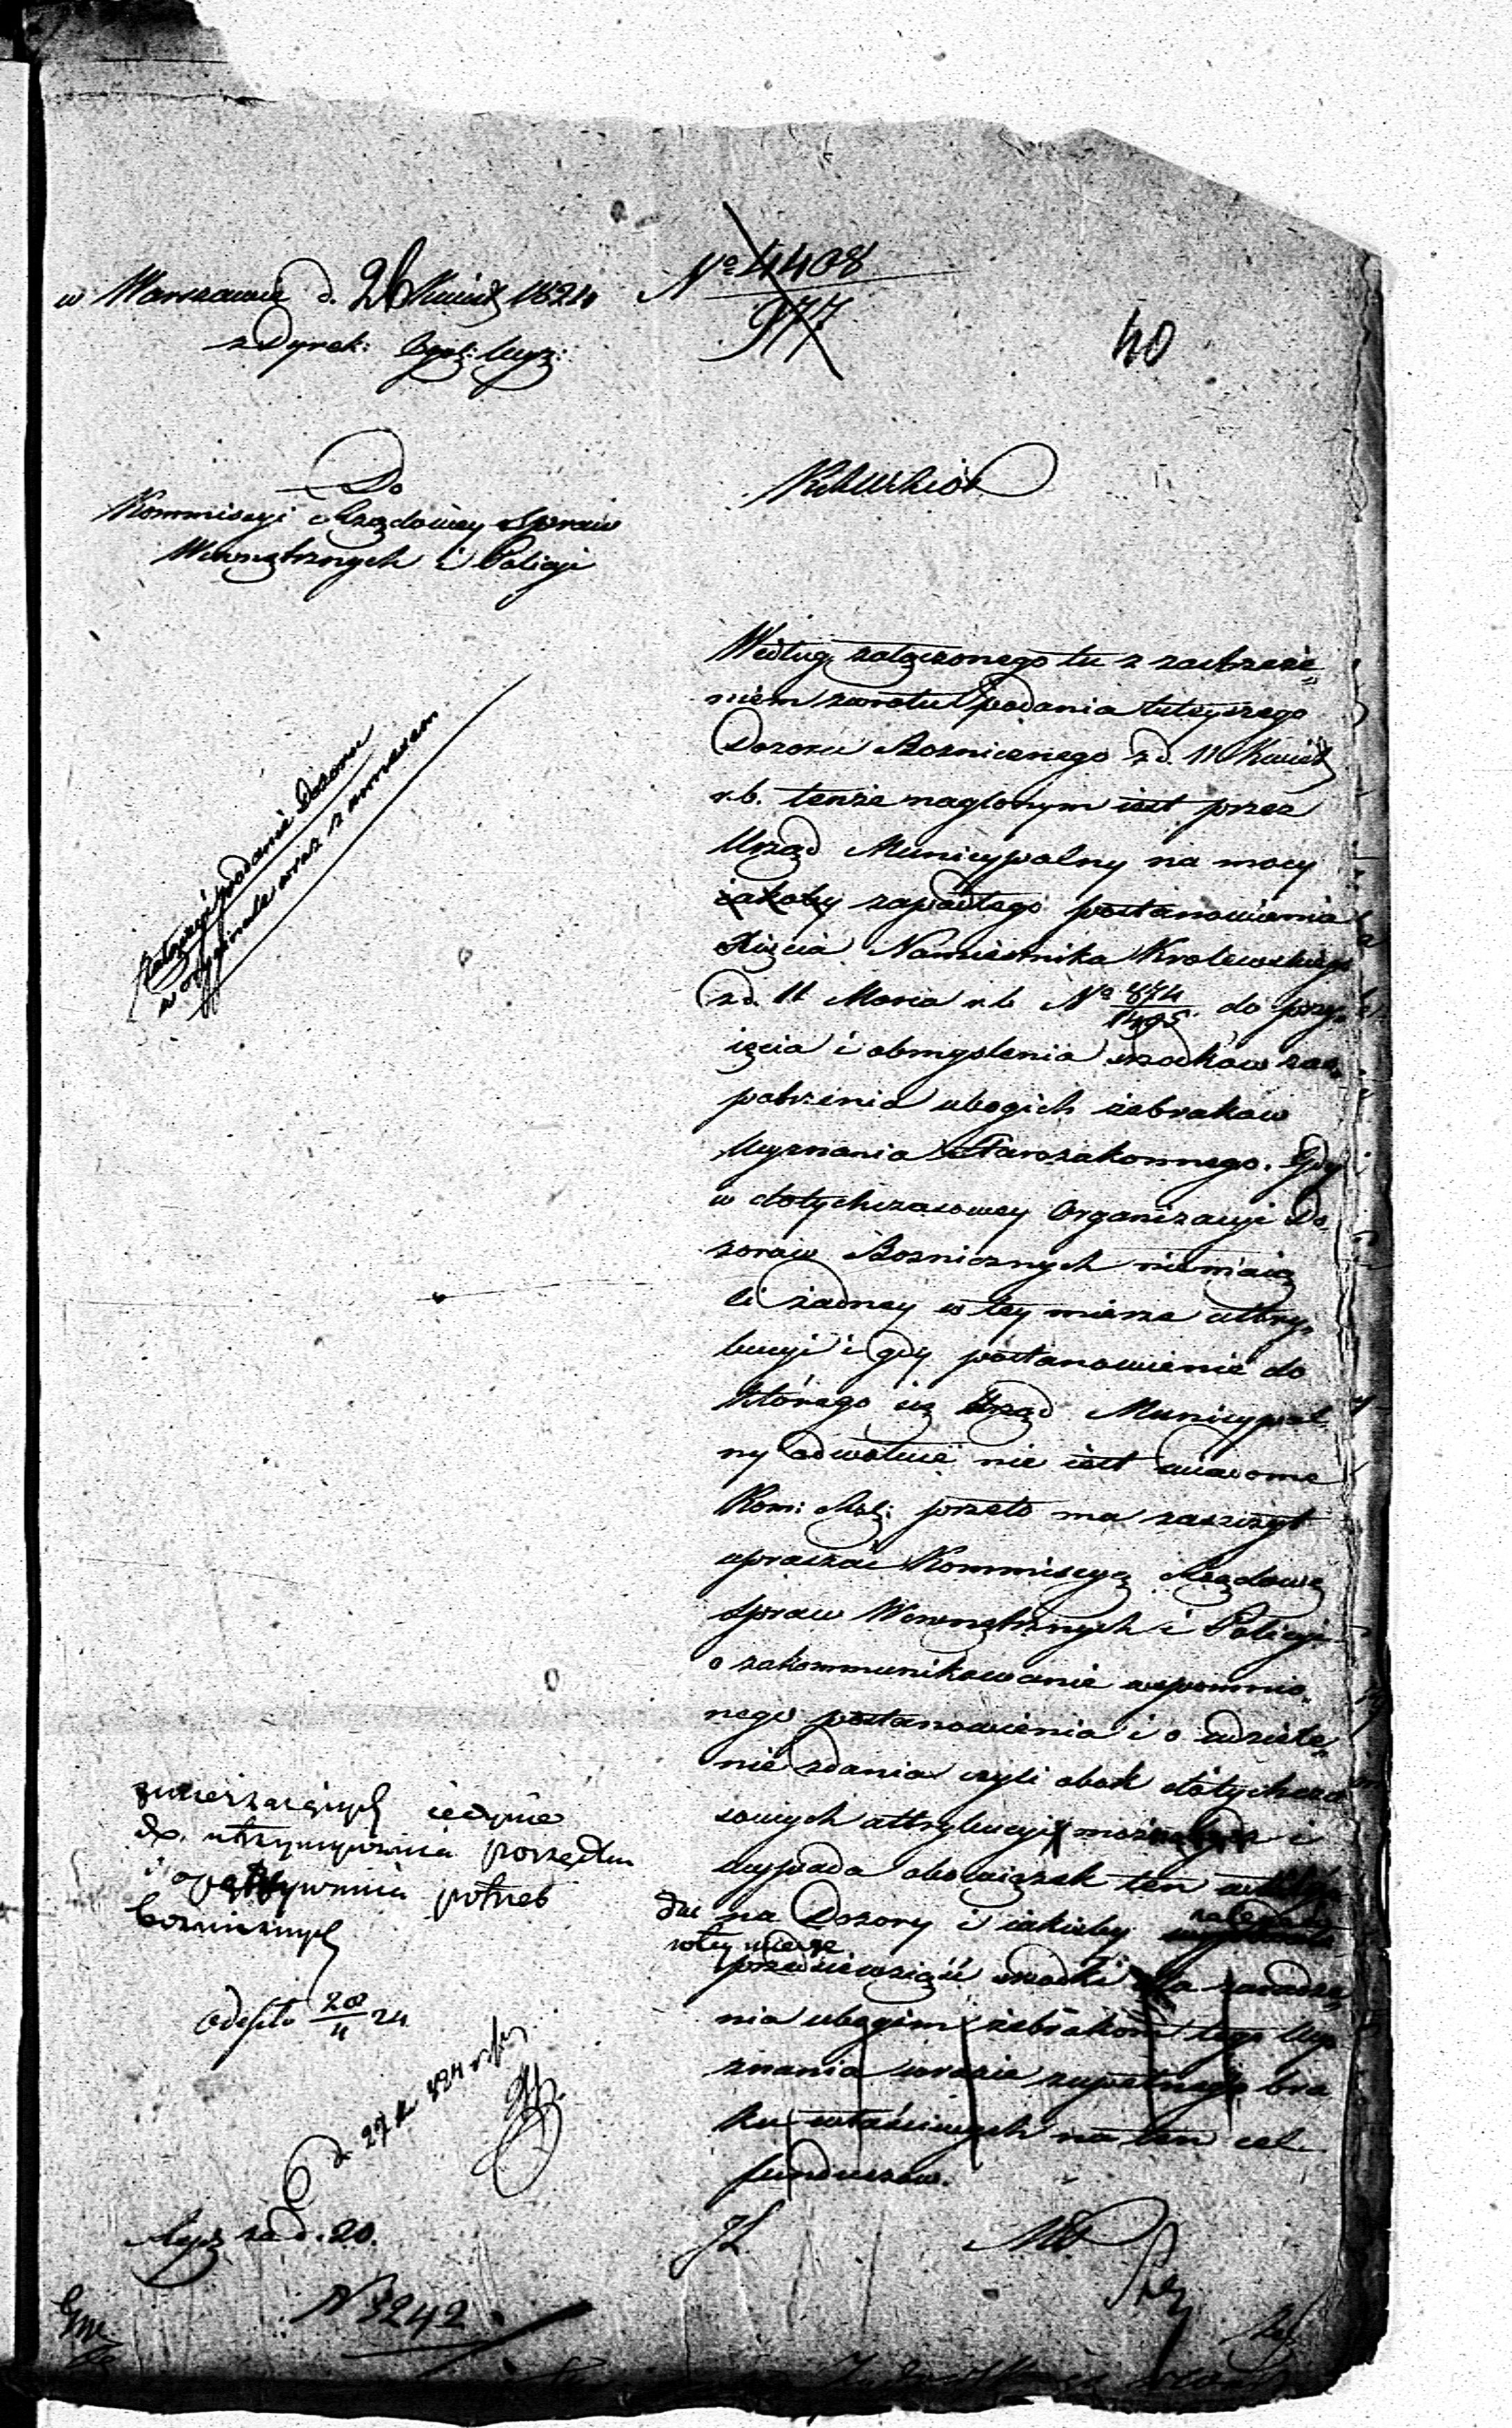 w Warszawie d. 26 Kwiet 1824
z Dyrek: Ogól: Wyz:
Nº 4408
977
40
Do
Kommissyi Rządowey Spraw
Wewnętrznych i Policyi
Załączyć podanie Dozoru
w oryginale wraz z annexem
Według załączonego tu z zastrzeże„
niem zwrotu podania tuteyszego
Dozoru Bożnicznego z d. 11 Kwiet
r.b. tenże naglonym iest przez
Urząd Municypalny na mocy
iakoby zapadłego postanowienia
Xięcia Namiestnika Krolewskiego
z d. 11 Marca r.b. Nº 874/1495 do przy„
ięcia i obmyslenia srzodkow zao„
patrzenia ubogich żebrakow
Wyznania Starozakonnego. Gdy
w dotychczasowey Organizacyi Do„
zorow Boznicznych niemaią
ci żadney w tey mierze attry„
bucyi i gdy postanowienie do
którego się Urząd Municypal„
ny odwołuie nie iest wiadome
Kom: Rzą: przeto ma zaszczyt
upraszać Kommissyą Rządową
Spraw Wewnętrznych i Policyi
o zakommunikowanie wspomnio„
nego postanowienia i o udziele„
nie zdania czyli obok dotychcza
sowych attrybucyi można i
wypada obowiązek ten
na Dozory i iakieby należało
w tey mierze
przedsiewziąść srzodki dla zaradze„
nia ubogim żebrakom tego Wy„
znania w razie zupełnego bra
ku właściwych na ten cel
funduszow.
zmierzaiących iedynie
do utrzymywania porządku
i opatrywania potrzeb
boznicznych
odeszło 28/4 24
d. 27 k 824
za d. 20.
N 3242